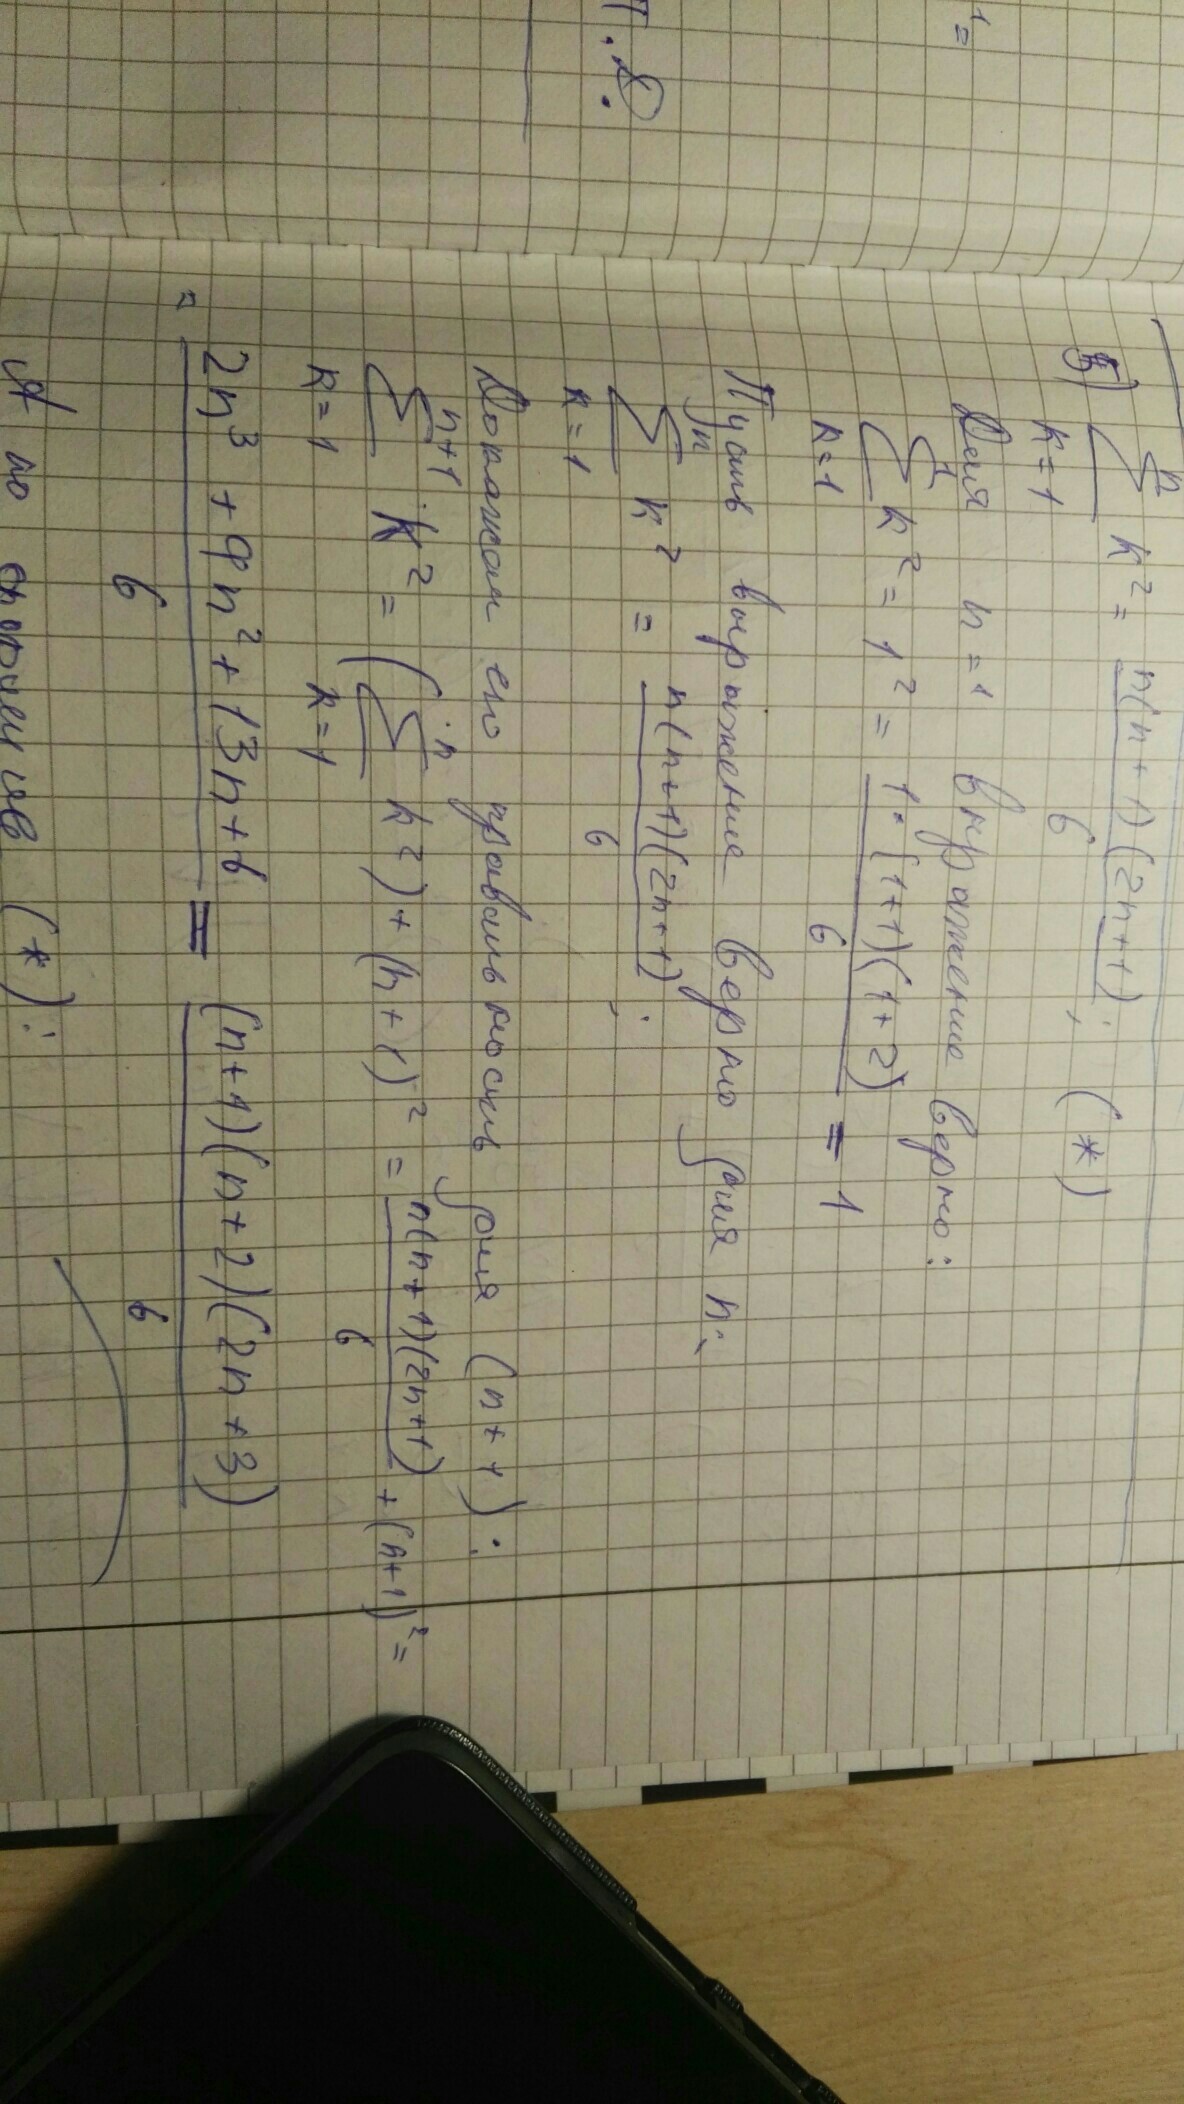 1 =
Т.Д.
5) n ∑ k=1 k² = n(n+1)(2n+1) / 6 ; (*)
Для n=1 выражение верно:
1 ∑ k=1 k² = 1² = 1·(1+1)(1+2) / 6 = 1
Пусть выражение верно для n:
n ∑ k=1 k² = n(n+1)(2n+1) / 6 ;
Докажем его правильность для (n+1):
n+1 ∑ k=1 k² = (n ∑ k=1 k²) + (n+1)² = n(n+1)(2n+1) / 6 + (n+1)² =
= 2n³ + 9n² + 13n + 6 / 6 = (n+1)(n+2)(2n+3) / 6
А по формуле (*):